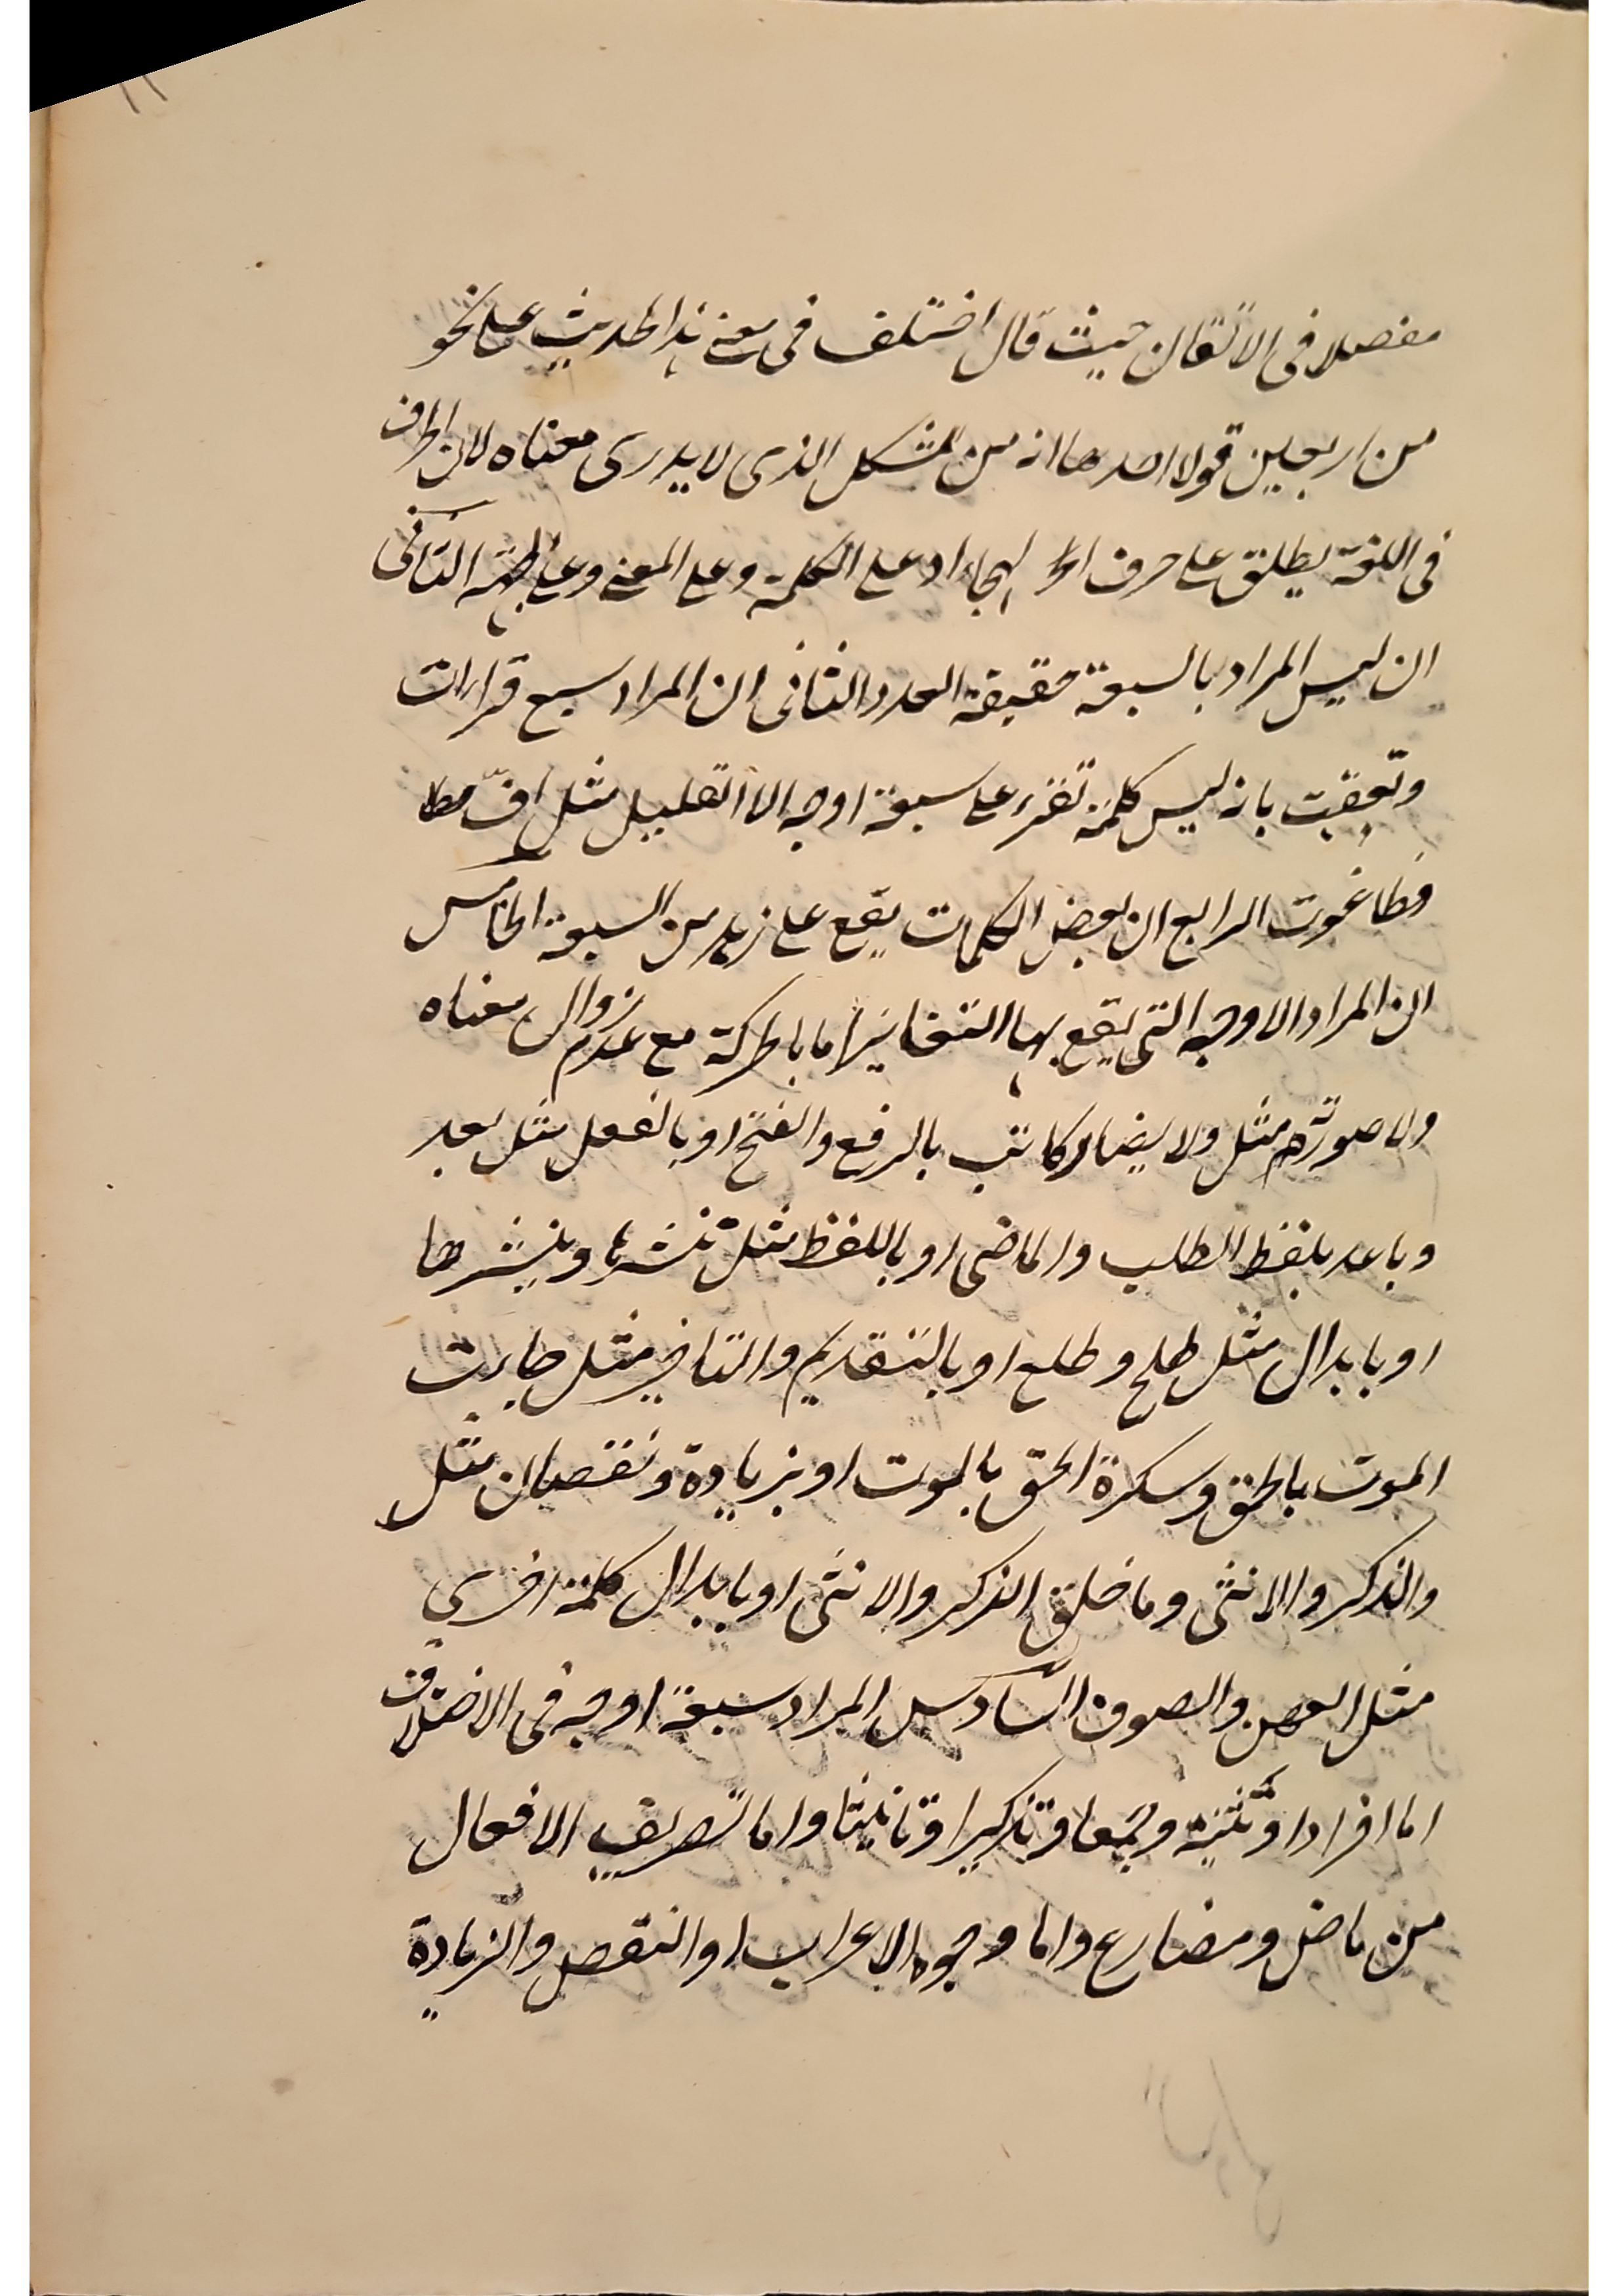 مفصلا فى الاتقان حيث قال اختلف فى معنى هذا الحديث على نحو
من اربعين قولا احدها انه من المشكل الذى لا يدرى معناه لان الحرف
فى اللغة يطلق على حرف الهجاء او على الكلمة وعلى المعنى وعلى الجهة الثانى
ان ليس المراد بالسبعة حقيقة العدد الثانى ان المراد سبع قراات
وتعقبت بانه ليس كلمة تقرء على سبعة اوجه الا القليل مثل اف
فطاغوت الرابع ان بعض الكلمات يقع على زيد من السبعة الخامس
ان المراد الاوجه التى يقع بها التغاير اما بالحركة مع عدم زوال معناه
ولا صورته مثل ولا يضار كاتب بالرفع والفتح او بالفعل مثل بعد
وباعد بلفظ الطلب والماضى او باللفظ مثل ننشرها وننشزها
او بابدال مثل طلح وطلع او بالتقديم والتاخير مثل جاءت
الموت بالحق وسكرة الحق بالموت او بزيادة ونقصان مثل
والذكر والانثى وما خلق الذكر والانثى او بابدال كلمة اخرى
مثل العهن والصوف السّادس المراد سبعة اوجه فى الاختلاف
اما افرادا وتثنية وجمعا وتذكيرا وتانيثا واما تصريف الافعال
من ماض ومضارع واما وجوه الاعراب او النقص والزيادة